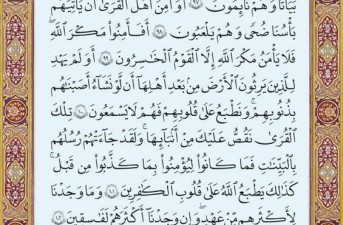 بَيَٰتًا وَهُمْ نَآئِمُونَ ٩٧ أَوَأَمِنَ أَهْلُ ٱلْقُرَىٰٓ أَن يَأْتِيَهُم
بَأْسُنَا ضُحًى وَهُمْ يَلْعَبُونَ ٩٨ أَفَأَمِنُوا۟ مَكْرَ ٱللَّهِ ۚ
فَلَا يَأْمَنُ مَكْرَ ٱللَّهِ إِلَّا ٱلْقَوْمُ ٱلْخَٰسِرُونَ ٩٩ أَوَلَمْ يَهْدِ
لِلَّذِينَ يَرِثُونَ ٱلْأَرْضَ مِنۢ بَعْدِ أَهْلِهَآ أَن لَّوْ نَشَآءُ أَصَبْنَٰهُم
بِذُنُوبِهِمْ ۚ وَنَطْبَعُ عَلَىٰ قُلُوبِهِمْ فَهُمْ لَا يَسْمَعُونَ ١٠٠ تِلْكَ
ٱلْقُرَىٰ نَقُصُّ عَلَيْكَ مِنْ أَنۢبَآئِهَا ۚ وَلَقَدْ جَآءَتْهُمْ رُسُلُهُم
بِٱلْبَيِّنَٰتِ فَمَا كَانُوا۟ لِيُؤْمِنُوا۟ بِمَا كَذَّبُوا۟ مِن قَبْلُ ۚ
كَذَٰلِكَ يَطْبَعُ ٱللَّهُ عَلَىٰ قُلُوبِ ٱلْكَٰفِرِينَ ١٠١ وَمَا وَجَدْنَا
لِأَكْثَرِهِم مِّنْ عَهْدٍ ۖ وَإِن وَجَدْنَآ أَكْثَرَهُمْ لَفَٰسِقِينَ ١٠٢